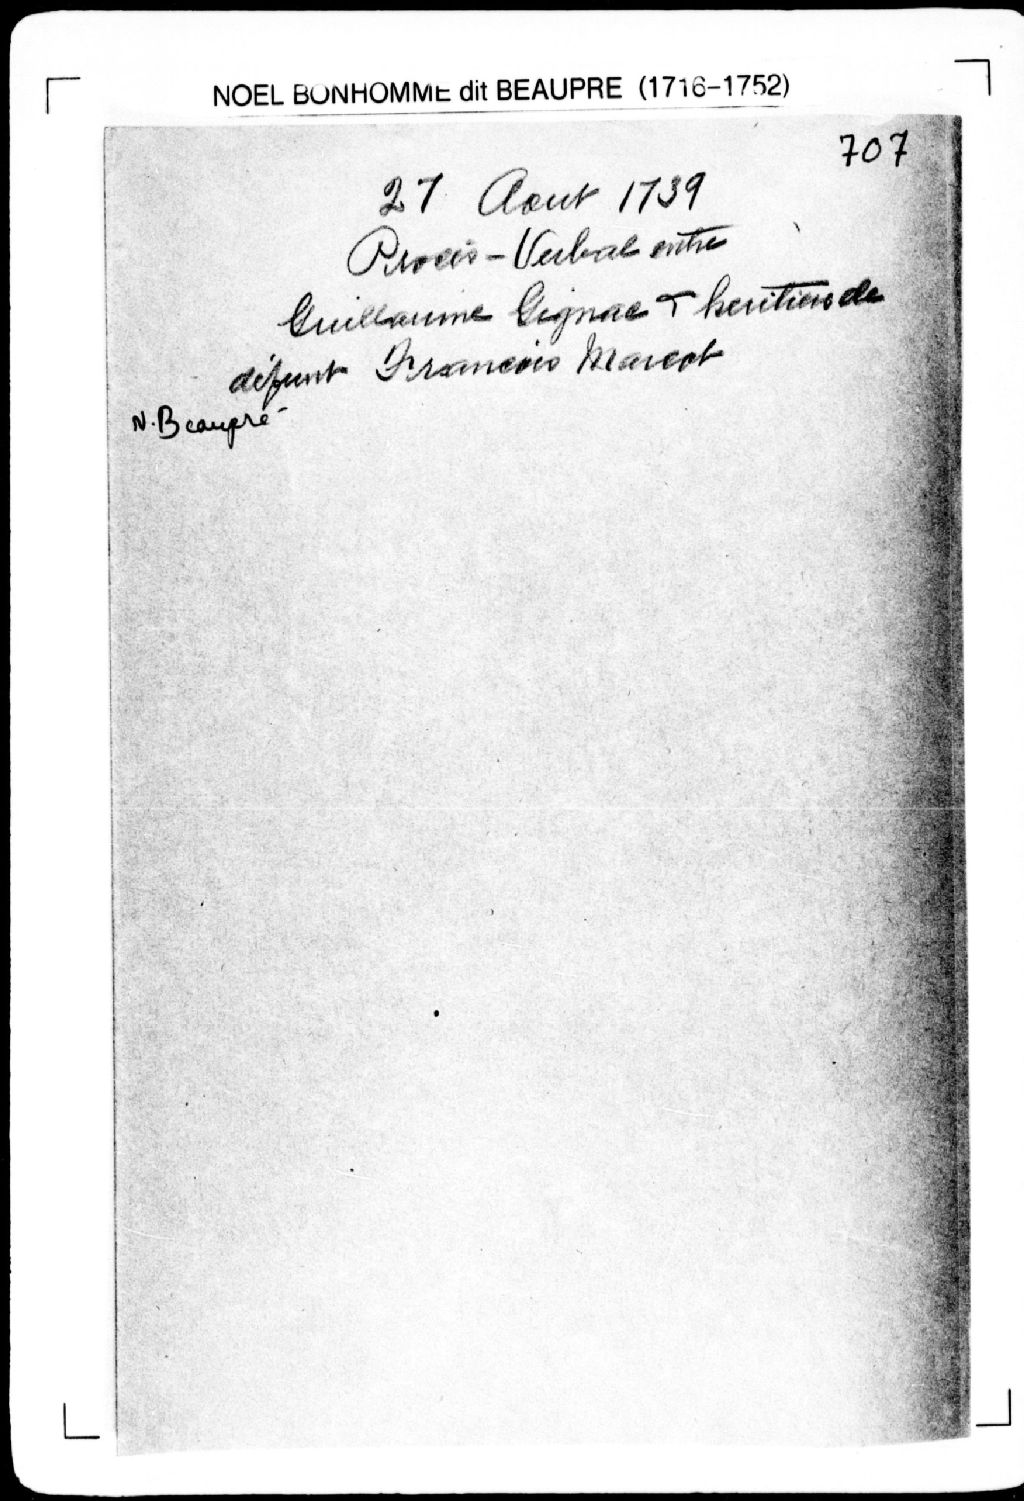 NOEL BONHOMME dit BEAUPRE (1716-1752)
707
27 Aout 1739
Procès-Verbal entre
Guillaume Gignac & heritiers de
défunt François Marcot
N. Beaupré